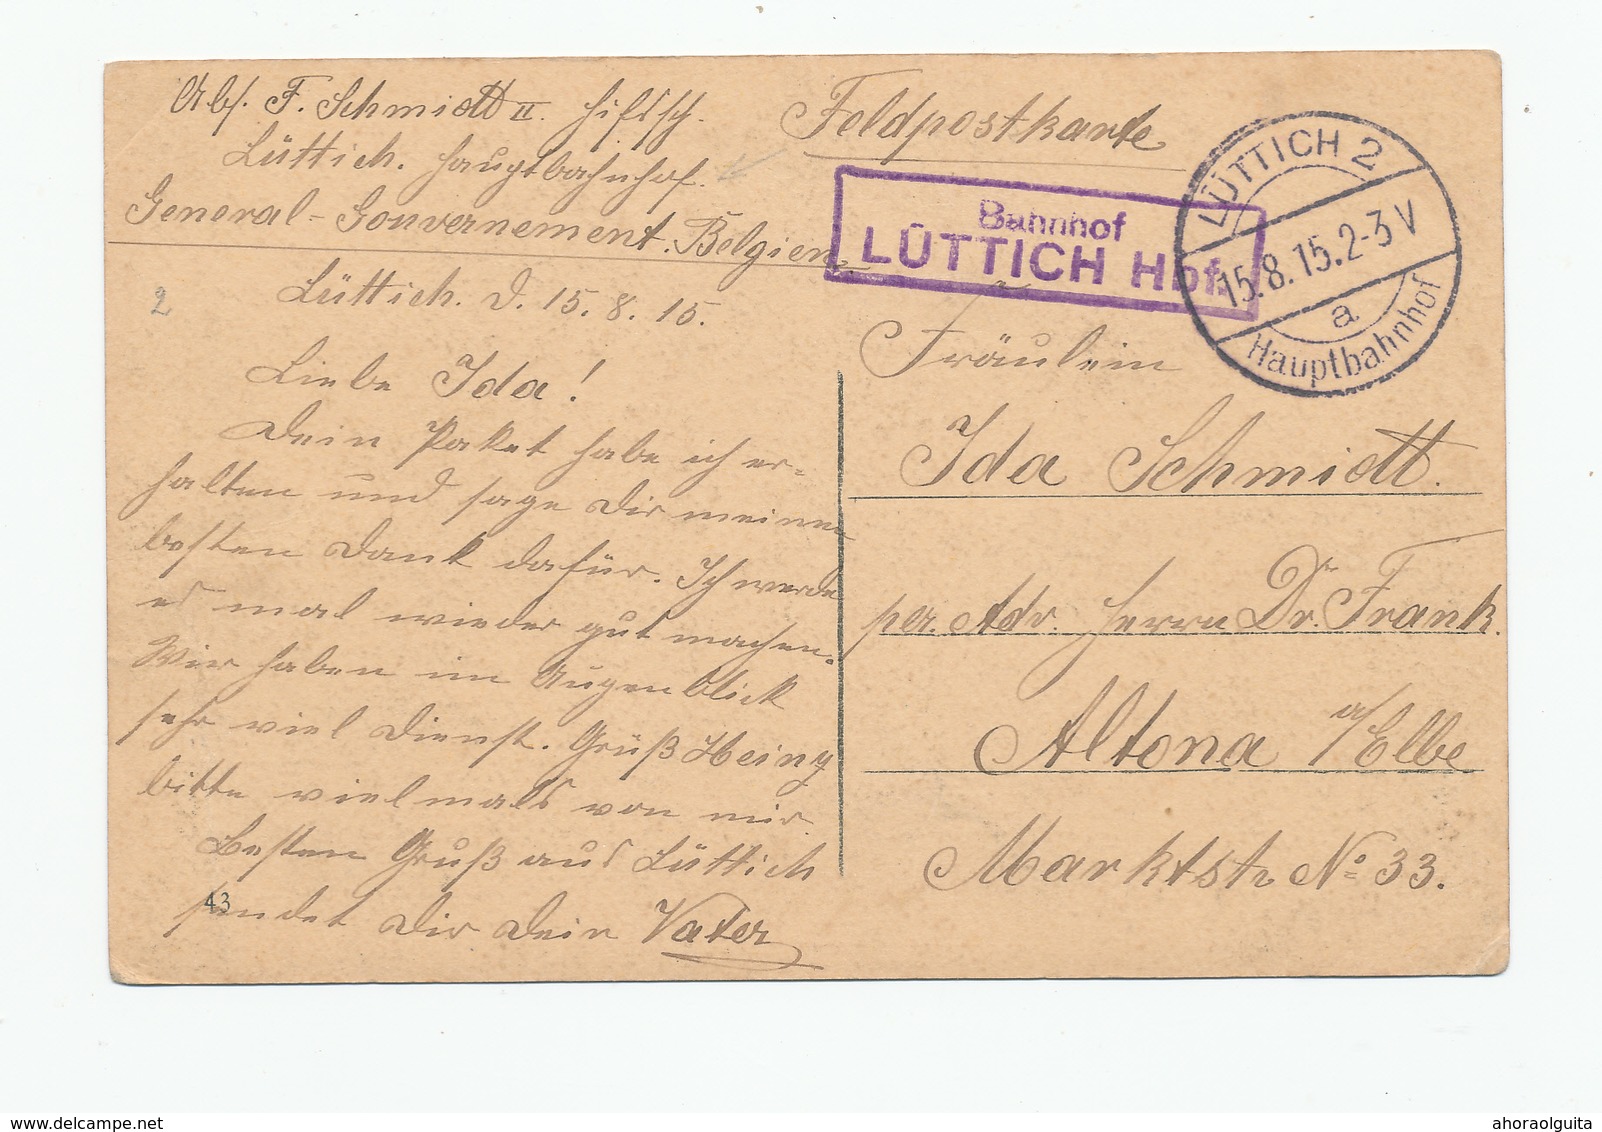 Abs. F. Schmidt II. Hilfssch.
Lüttich. Hauptbahnhof.
General-Gouvernement. Belgien.
Feldpostkarte
Bahnhof
LÜTTICH Hbf.
LÜTTICH 2
15.8.15.2-3 V
a
Hauptbahnhof
2
Lüttich. d. 15. 8. 15.
Liebe Ida!
Dein Paket habe ich er-
halten und sage Dir meinen
besten Dank dafür. Ich werde
es mal wieder gut machen.
Wir haben im Augenblick
sehr viel Dienst. Grüß Heinz
bitte vielmals von mir.
Besten Gruß aus Lüttich
sendet Dir Dein Vater
43
Fräulein
Ida Schmidt.
per. Adr. Herrn Dr. Frank.
Altona a/Elbe
Marktstr No 33.
ahoraolguita